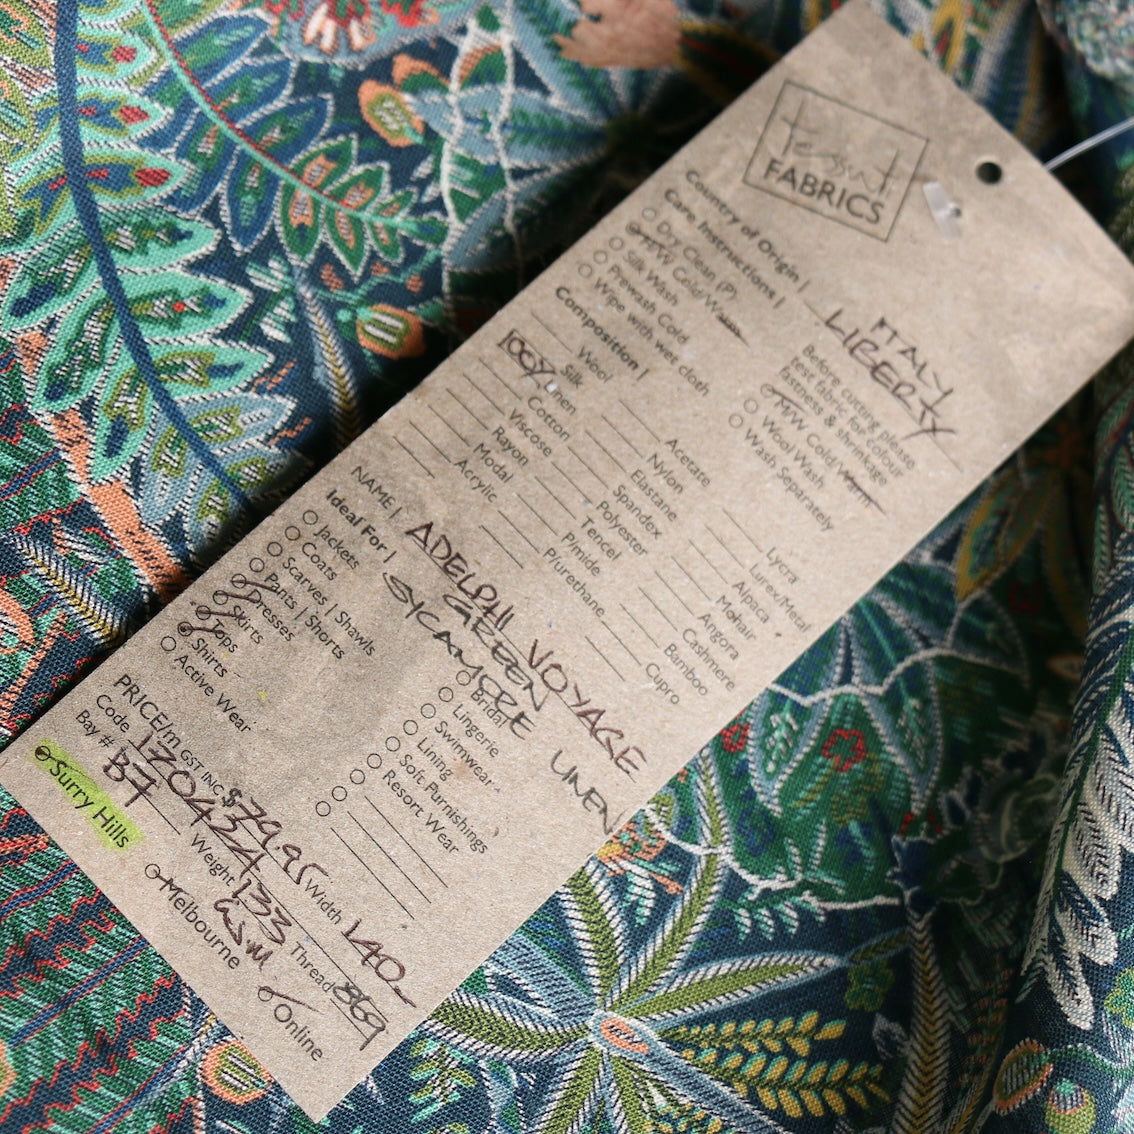 tessuti
FABRICS
Country of Origin | ITALY
LIBERTY
Care Instructions |
Dry Clean (P)
MW Cold/Warm
Silk Wash
Prewash Cold
Wipe with wet cloth
Before cutting please
test fabric for colour
fastness & shrinkage
MW Cold/Warm
Wool Wash
Wash Separately
Composition |
Wool
Silk
100% Linen
Cotton
Viscose
Rayon
Modal
Acrylic
Acetate
Nylon
Elastane
Spandex
Polyester
Tencel
P/mide
P/urethane
Lycra
Lurex/Metal
Alpaca
Mohair
Angora
Cashmere
Bamboo
Cupro
NAME | ADELPHI VOYAGE
GREEN
SYCAMORE LINEN
Ideal For |
Jackets
Coats
Scarves | Shawls
Pants | Shorts
Dresses
Skirts
Tops
Shirts
Active Wear
Bridal
Lingerie
Swimwear
Lining
Soft Furnishings
Resort Wear
PRICE/m GST INC $79.95 Width 140
Code 1204324 133 Thread 869
Bay # B7 Weight
Surry Hills
Melbourne
Online